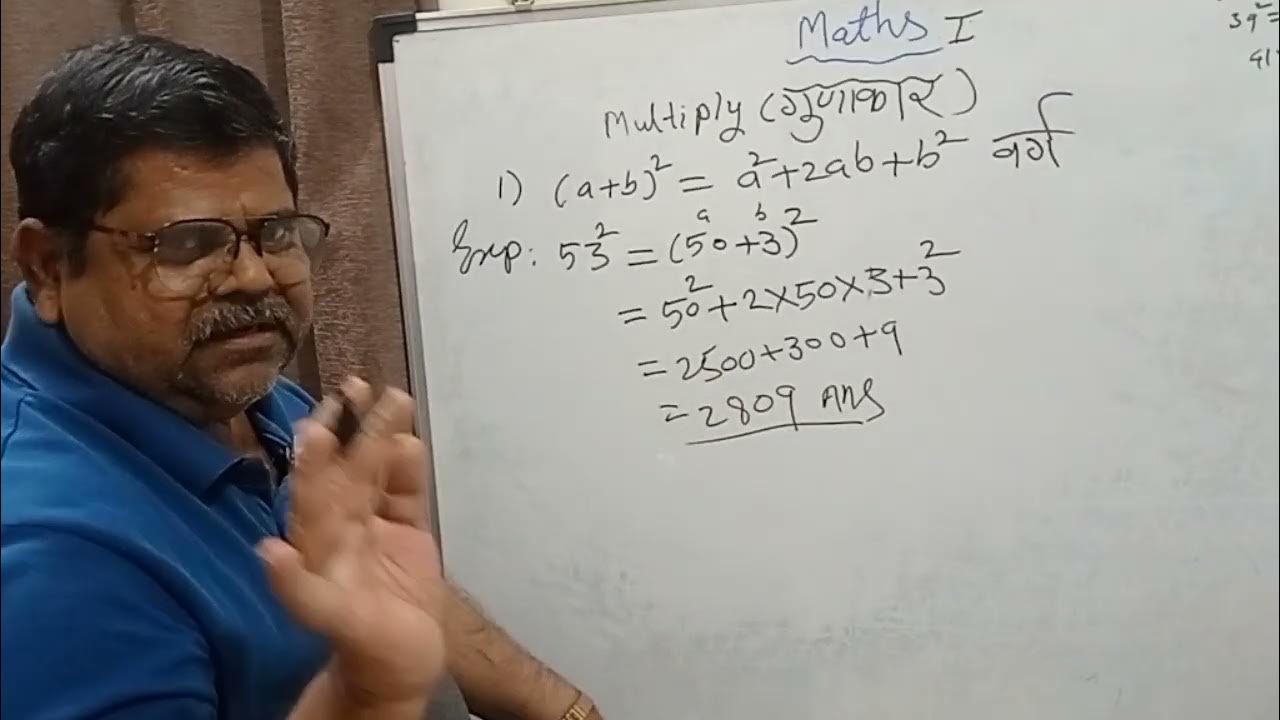 Maths I
Multiply (गुणाकार)
1) (a+b)² = a²+2ab+b² वर्ग
a b
Exp: 53² = (50+3)²
= 50²+2×50×3+3²
= 2500+300+9
= 2809 Ans
39²=
41